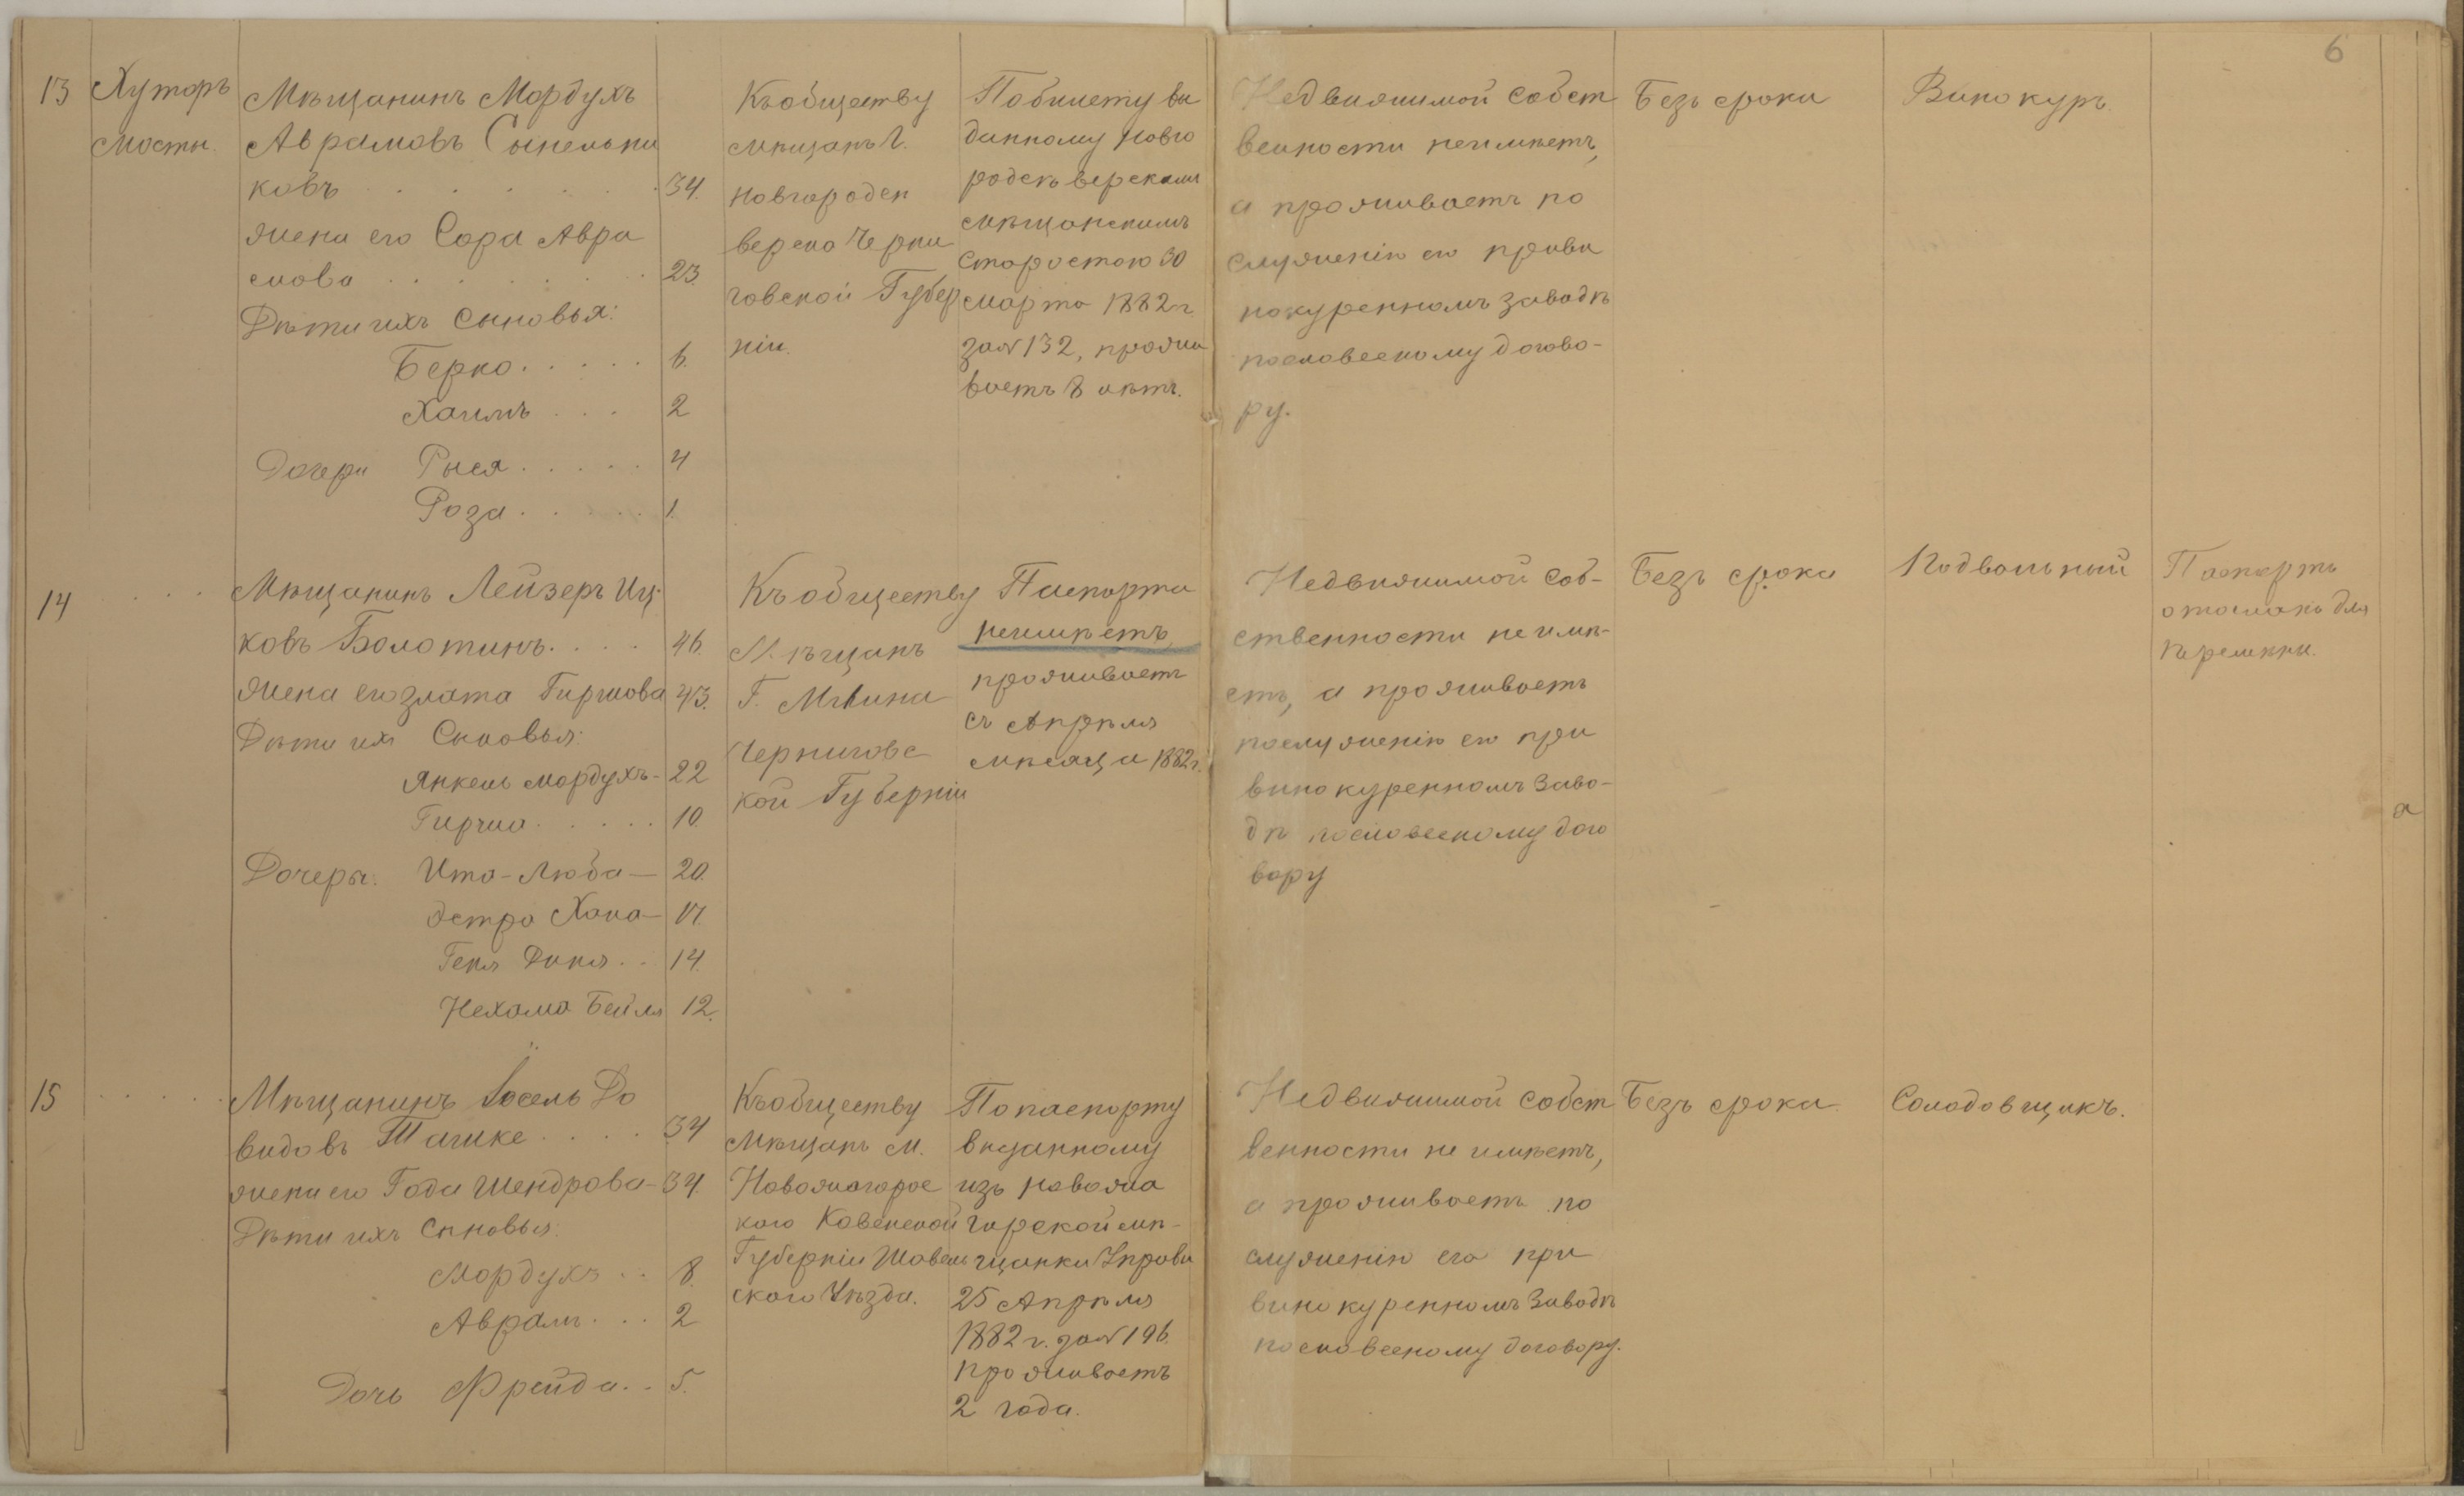 6
13
Хуторъ
Мосты.
Мѣщанинъ Мордухъ
Аврамовъ Сынельни
ковъ . . . . . . 34.
жена его Сора Авра
мова . . . . . . 23
Дѣти ихъ Сыновья:
Берко . . . . . 6.
Хаимъ . . . 2
Дочери Рыся . . . . . 4
Роза . . . . . 1.
Къ обществу
мѣщанъ Г.
Новгородсѣ
верска Черни
говской Губер
ніи.
По билету ви
данному Новго
родсѣверскимъ
мѣщанскимъ
Старостою 30
марта 1882 г.
за № 132, прожи
ваетъ 8 лѣтъ.
Недвижимой собст
венности неимѣетъ,
а проживаетъ по
служенію его при ви
нокуренномъ заводѣ
по словесному догово-
ру.
Безъ срока
Винокуръ.
14
Мѣщанинъ Лейзеръ Иц
ковъ Болотинъ . . . . 46.
жена его Злата Гиршова 43.
Дѣти ихъ Сыновья:
Янкель Мордухъ - 22
Гирша . . . . . 10.
Дочеры: Ита-Люба — 20.
Эстра Хана — 17.
Геня Диня . . 14.
Нехама Бейля 12.
Къ обществу
Мѣщанъ
Г. Мглина
Чернигове
кой Губерніи
Паспорта
неимѣетъ,
проживаетъ
съ Апрѣля
мѣсяца 1882 г.
Недвижимой соб-
ственности не имѣ-
етъ, а проживаетъ
по служенію его при
винокуренномъ заво-
дѣ по словесному дого
вору
Безъ срока
Подвальный
Паспортъ
отосланъ для
перемѣны.
15
Мѣщанинъ Іосель До
видовъ Ташке . . . . 34
жена его Года Шендрова - 34.
Дѣти ихъ Сыновья:
Мордухъ . . 8.
Аврамъ . . . 2
Дочь Фрейда . . 5.
Къ обществу
Мѣщанъ М.
Новожагорс
каго Ковенской
Губерніи Шавель
скаго Уѣзда.
По паспорту
выданному
изъ Новожа
горской мѣ-
щанки Управы
25 Апрѣля
1882 г. за № 196.
проживаетъ
2 года.
Недвижимой собст
венности не имѣетъ,
а проживаетъ по
служенію его при
винокуренномъ заводѣ
по словесному договору.
Безъ срока
Солодовщикъ.